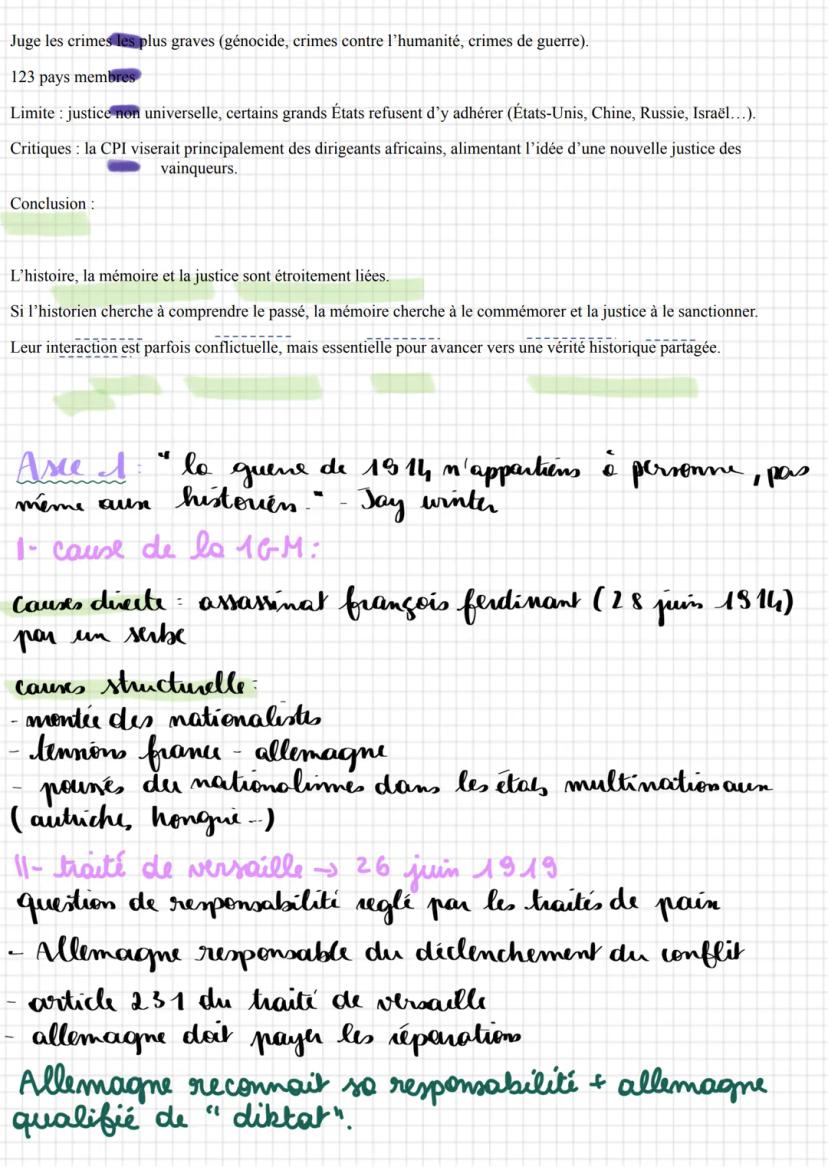 Juge les crimes les plus graves (génocide, crimes contre l’humanité, crimes de guerre).
123 pays membres
Limite : justice non universelle, certains grands États refusent d’y adhérer (États-Unis, Chine, Russie, Israël…).
Critiques : la CPI viserait principalement des dirigeants africains, alimentant l’idée d’une nouvelle justice des
vainqueurs.
Conclusion :
L’histoire, la mémoire et la justice sont étroitement liées.
Si l’historien cherche à comprendre le passé, la mémoire cherche à le commémorer et la justice à le sanctionner.
Leur interaction est parfois conflictuelle, mais essentielle pour avancer vers une vérité historique partagée.
Axe 1 : "la guerre de 1914 n'appartiens à personne, pas
même aux historién." - Jay winter
I- cause de la 1GM :
causes directe : assassinat françois ferdinant (28 juin 1914)
par un serbe
causes structurelle :
- montée des nationalists
- tensions france - allemagne
- poussés du nationalismes dans les états multinationaux
(autriche, hongrie --)
II- traité de versaille → 26 juin 1919
question de responsabilité reglé par les traités de paix
- Allemagne responsable du déclenchement du conflit
- article 231 du traité de versaille
- allemagne doit payer les réparations
Allemagne reconnait sa responsabilité + allemagne
qualifié de "diktat".